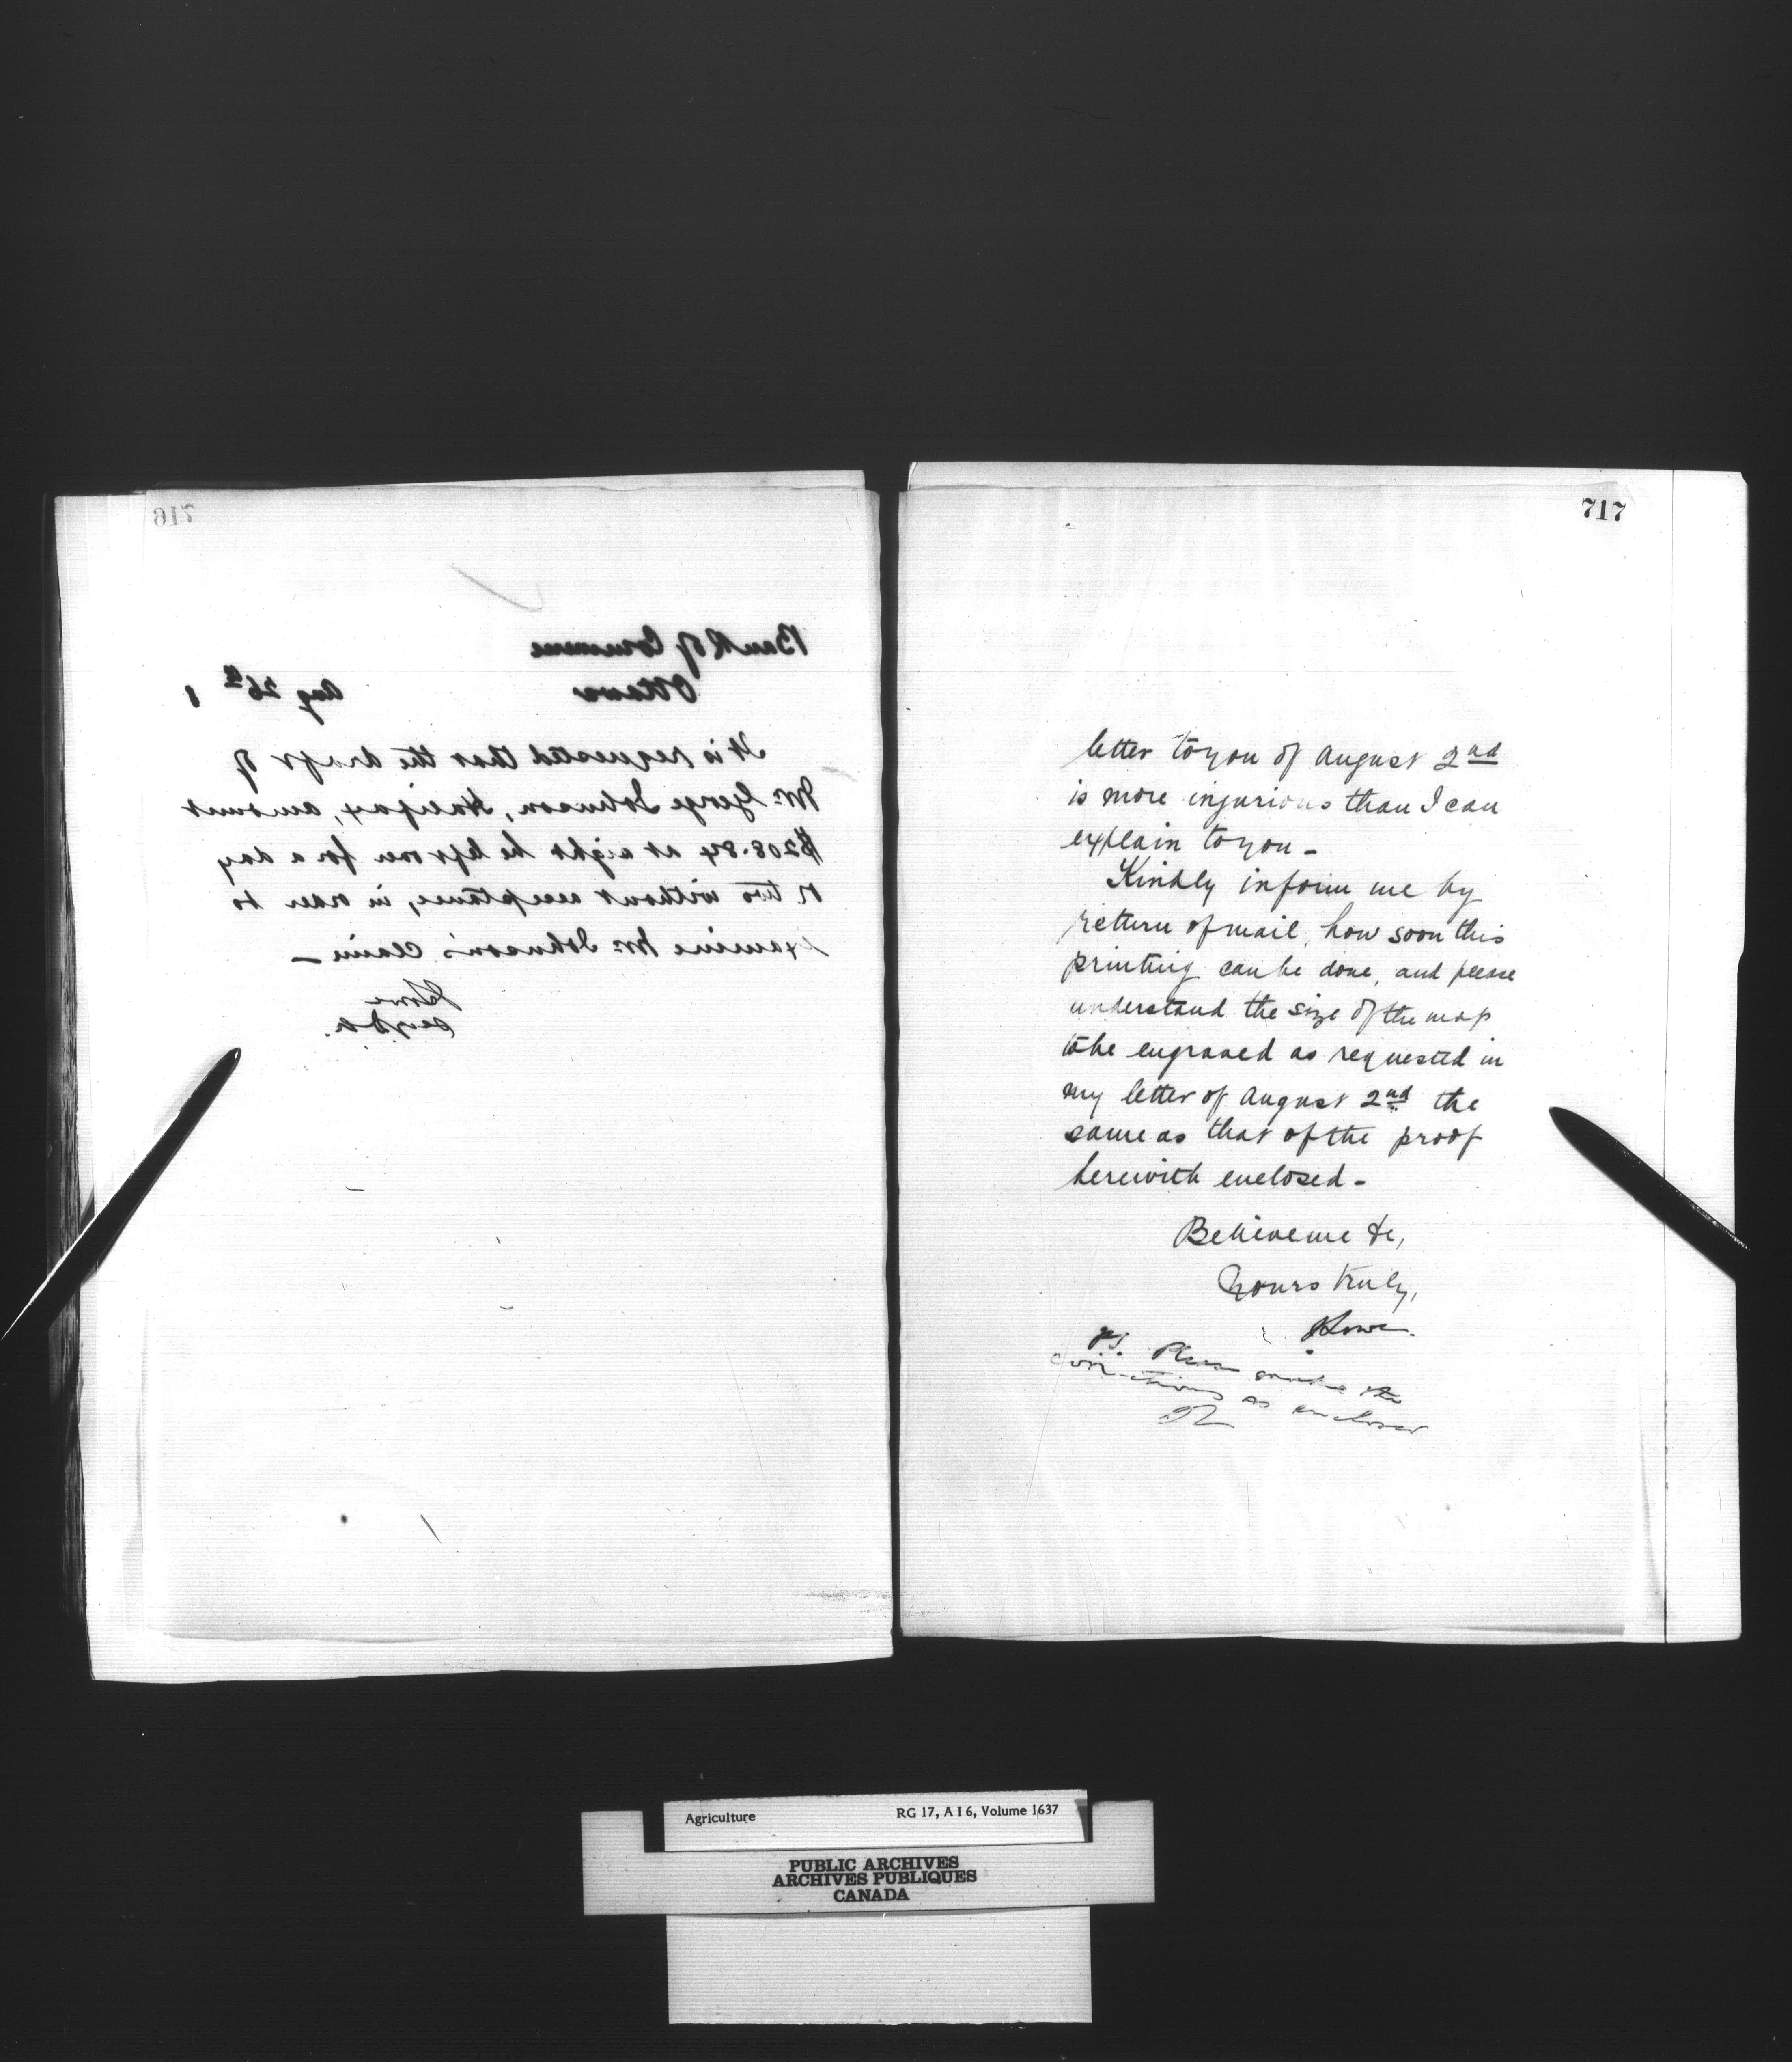 716
Bank of Commerce
Ottawa Aug 26th 8
It is requested that the draft of
Mr. George Johnson, Halifax, amount
$208.84 at sight be left over for a day
or two without acceptance, in order to
examine Mr. Johnson's claim —
Lowe
Sec. D. A.
717
letter to you of August 2nd
is more injurious than I can
explain to you -
Kindly inform me by
return of mail, how soon this
printing can be done, and please
understand the size of the map
to be engraved as requested in
my letter of August 2nd the
same as that of the proof
herewith enclosed -
Believe me &c,
Yours truly,
JLowe.
PS. Please make the
corrections as enclosed
JL
Agriculture RG 17, A I 6, Volume 1637
PUBLIC ARCHIVES
ARCHIVES PUBLIQUES
CANADA